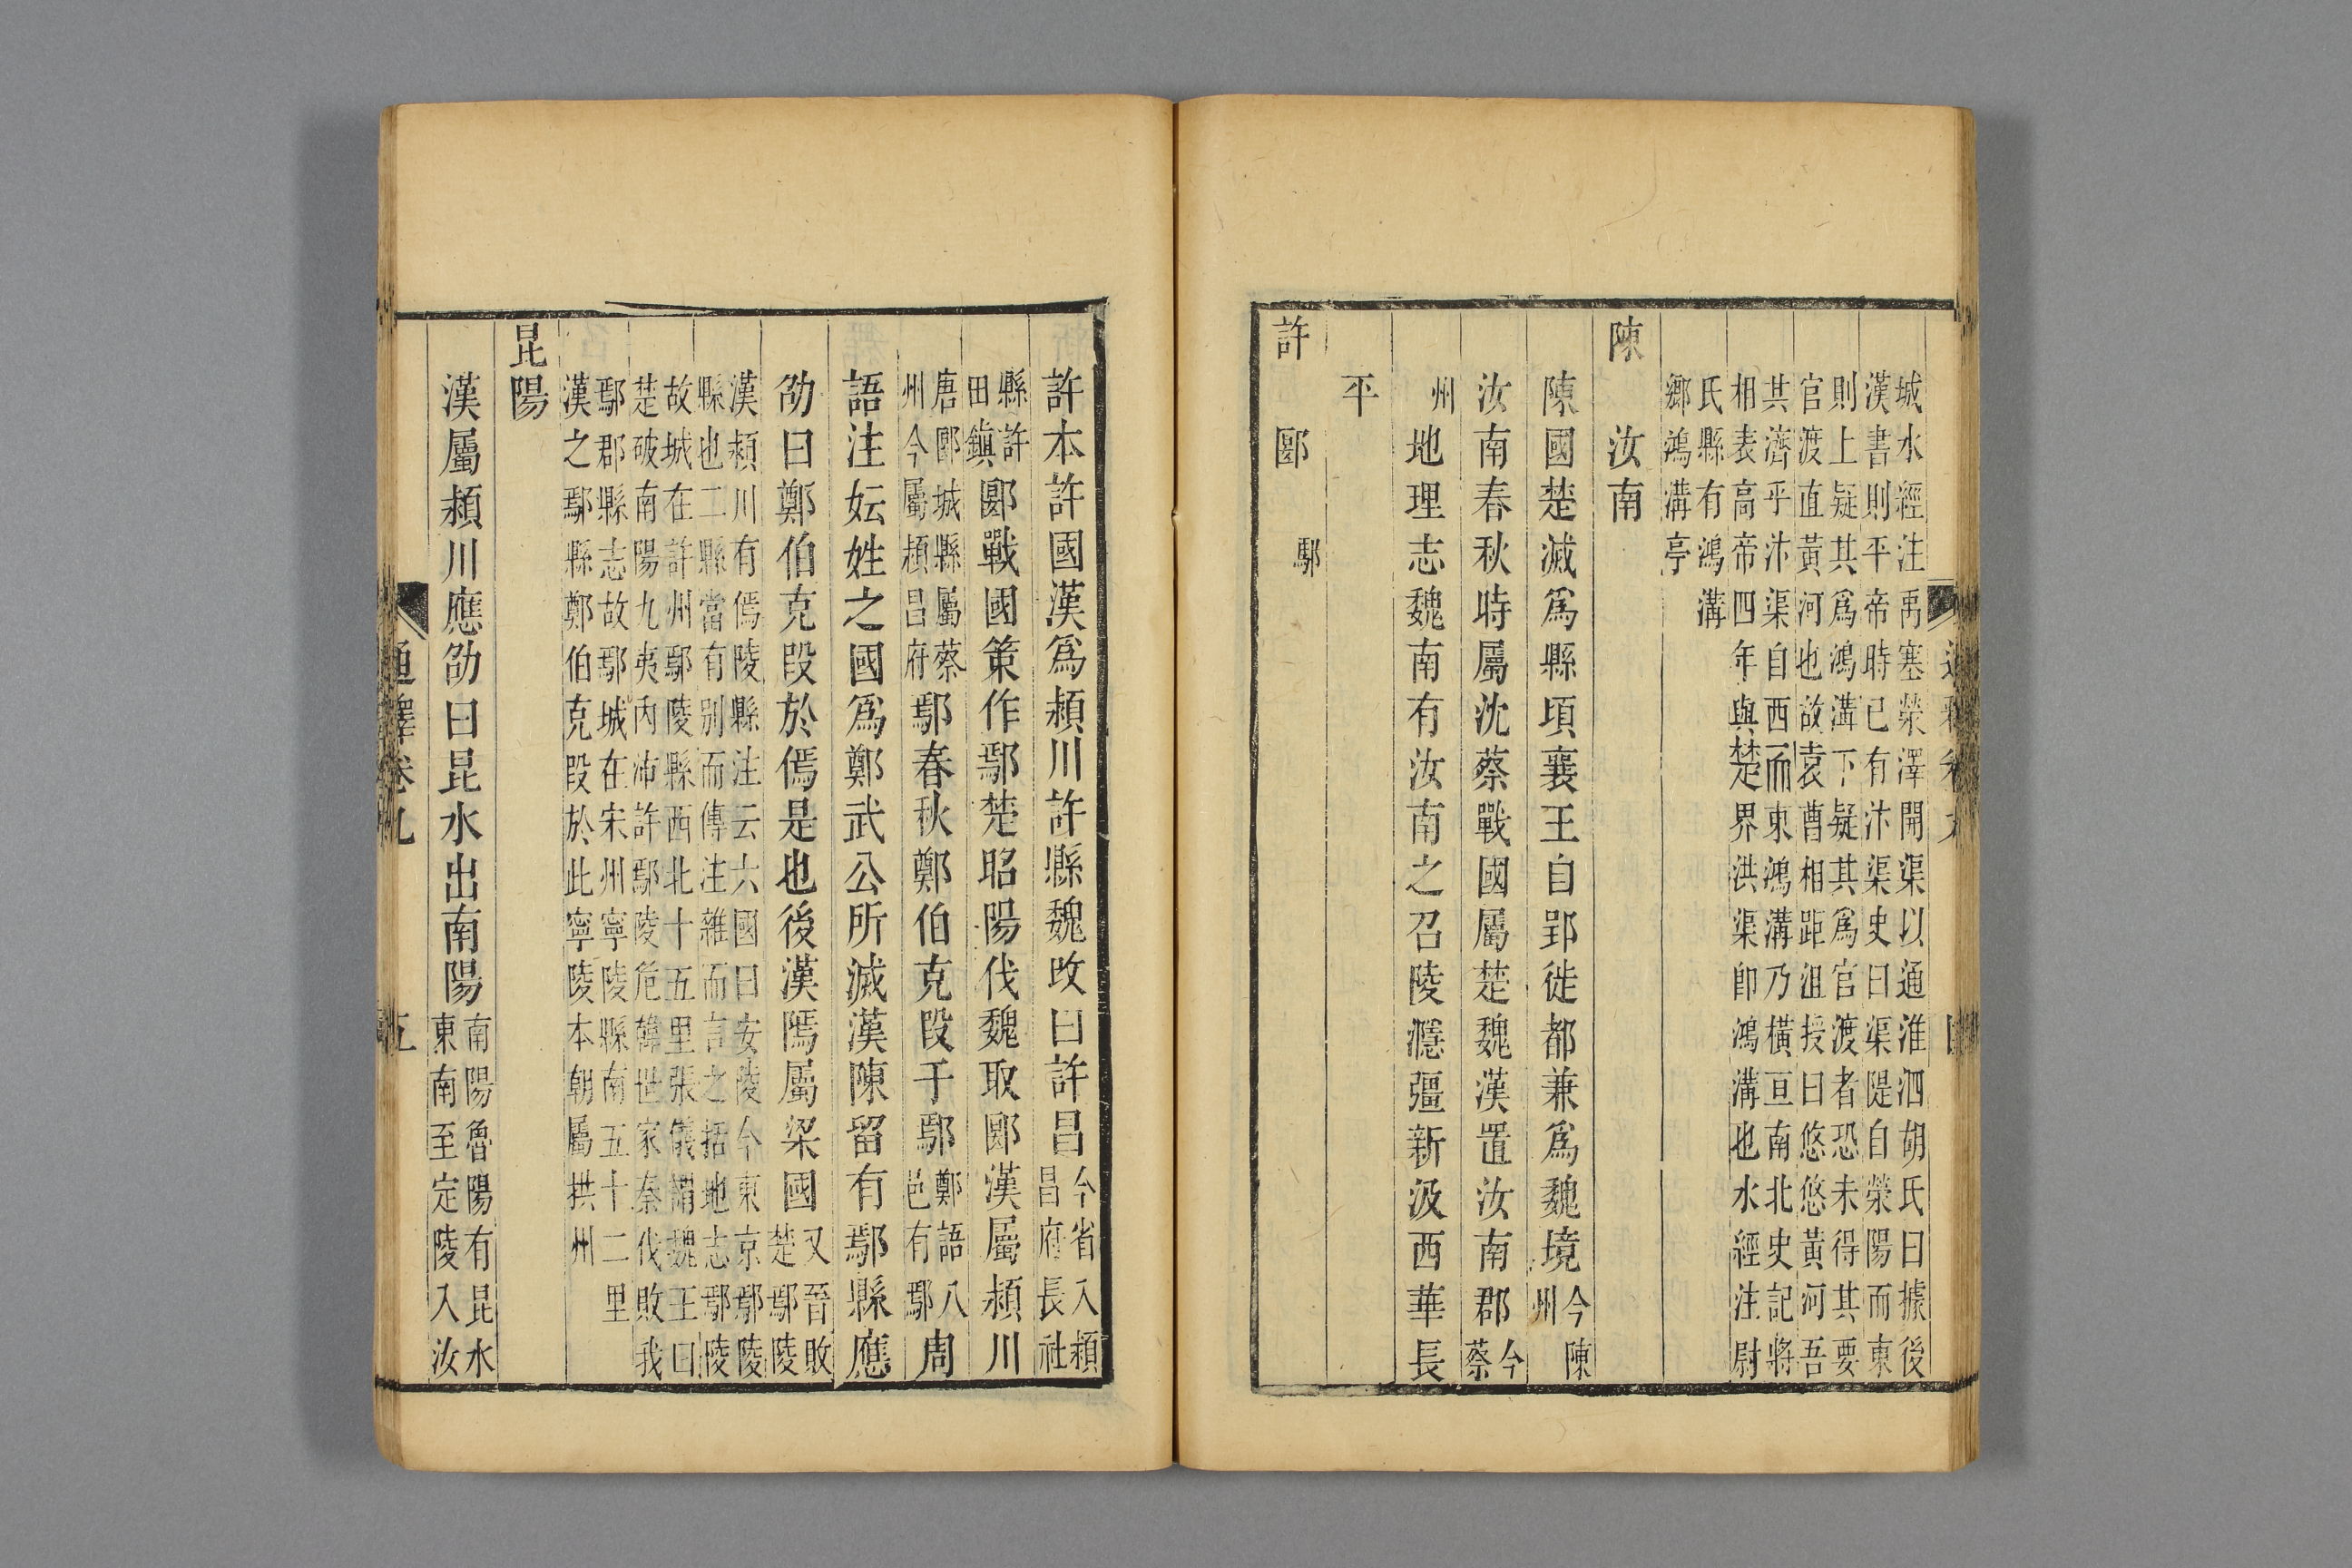 城水經注禹塞滎澤開渠以通淮泗胡氏曰據後
漢書則平帝時已有汴渠史曰渠隄自滎陽而東
則上疑其爲鴻溝下疑其爲官渡者恐未得其要
官渡直黃河也故袁曹相距沮授曰悠悠黃河吾
其濟乎汴渠自西而東鴻溝乃橫亘南北史記將
相表高帝四年與楚界洪渠卽鴻溝也水經注尉
氏縣有鴻溝
鄉鴻溝亭
陳 汝南
陳國楚滅爲縣頃襄王自郢徙都兼爲魏境今陳州
汝南春秋時屬沈蔡戰國屬楚魏漢置汝南郡今蔡
州地理志魏南有汝南之召陵㶏彊新汲西華長
平
許 郾 鄢
許本許國漢爲潁川許縣魏改曰許昌今省入潁昌府長社
縣許田鎮郾戰國策作鄢楚昭陽伐魏取郾漢屬潁川
唐郾城縣屬蔡州今屬潁昌府鄢春秋鄭伯克段于鄢鄭語八邑有鄢周
語注妘姓之國爲鄭武公所滅漢陳留有鄢縣應
劭曰鄭伯克段於傿是也後漢隝屬梁國又晉敗楚鄢陵
漢潁川有傿陵縣注云六國曰安陵今東京鄢陵
縣也二縣當有別而傳注雜而言之括地志鄢陵
故城在許州鄢陵縣西北十五里張儀謂魏王曰
楚破南陽九夷內沛許鄢陵危韓世家秦伐敗我
鄢郡縣志故鄢城在宋州寧陵縣南五十二里
漢之鄢縣鄭伯克段於此寧陵本朝屬拱州
昆陽
漢屬潁川應劭曰昆水出南陽南陽魯陽有昆水東南至定陵入汝
通釋卷九 五